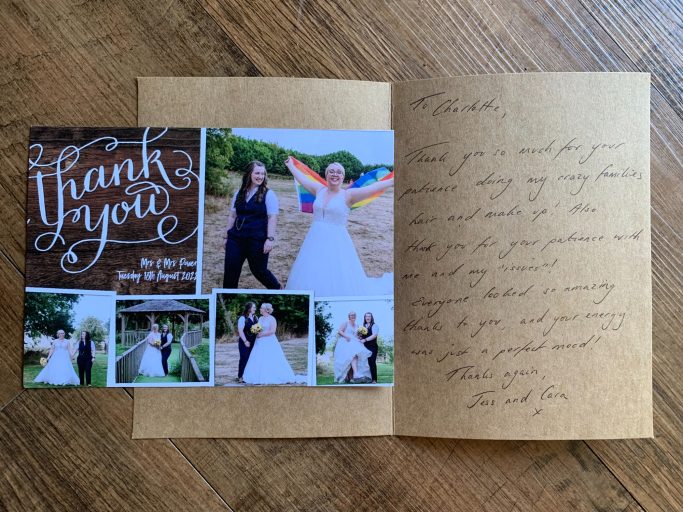 thank
you
Mrs & Mrs
Tuesday August
To Charlotte,
Thank you so much for your
patience doing my crazy families
hair and make up! Also
thank you for your patience with
me and my "issues"!
Everyone looked so amazing
thanks to you and your energy
was just a perfect mood!!
Thanks again,
Jess and Cara
x